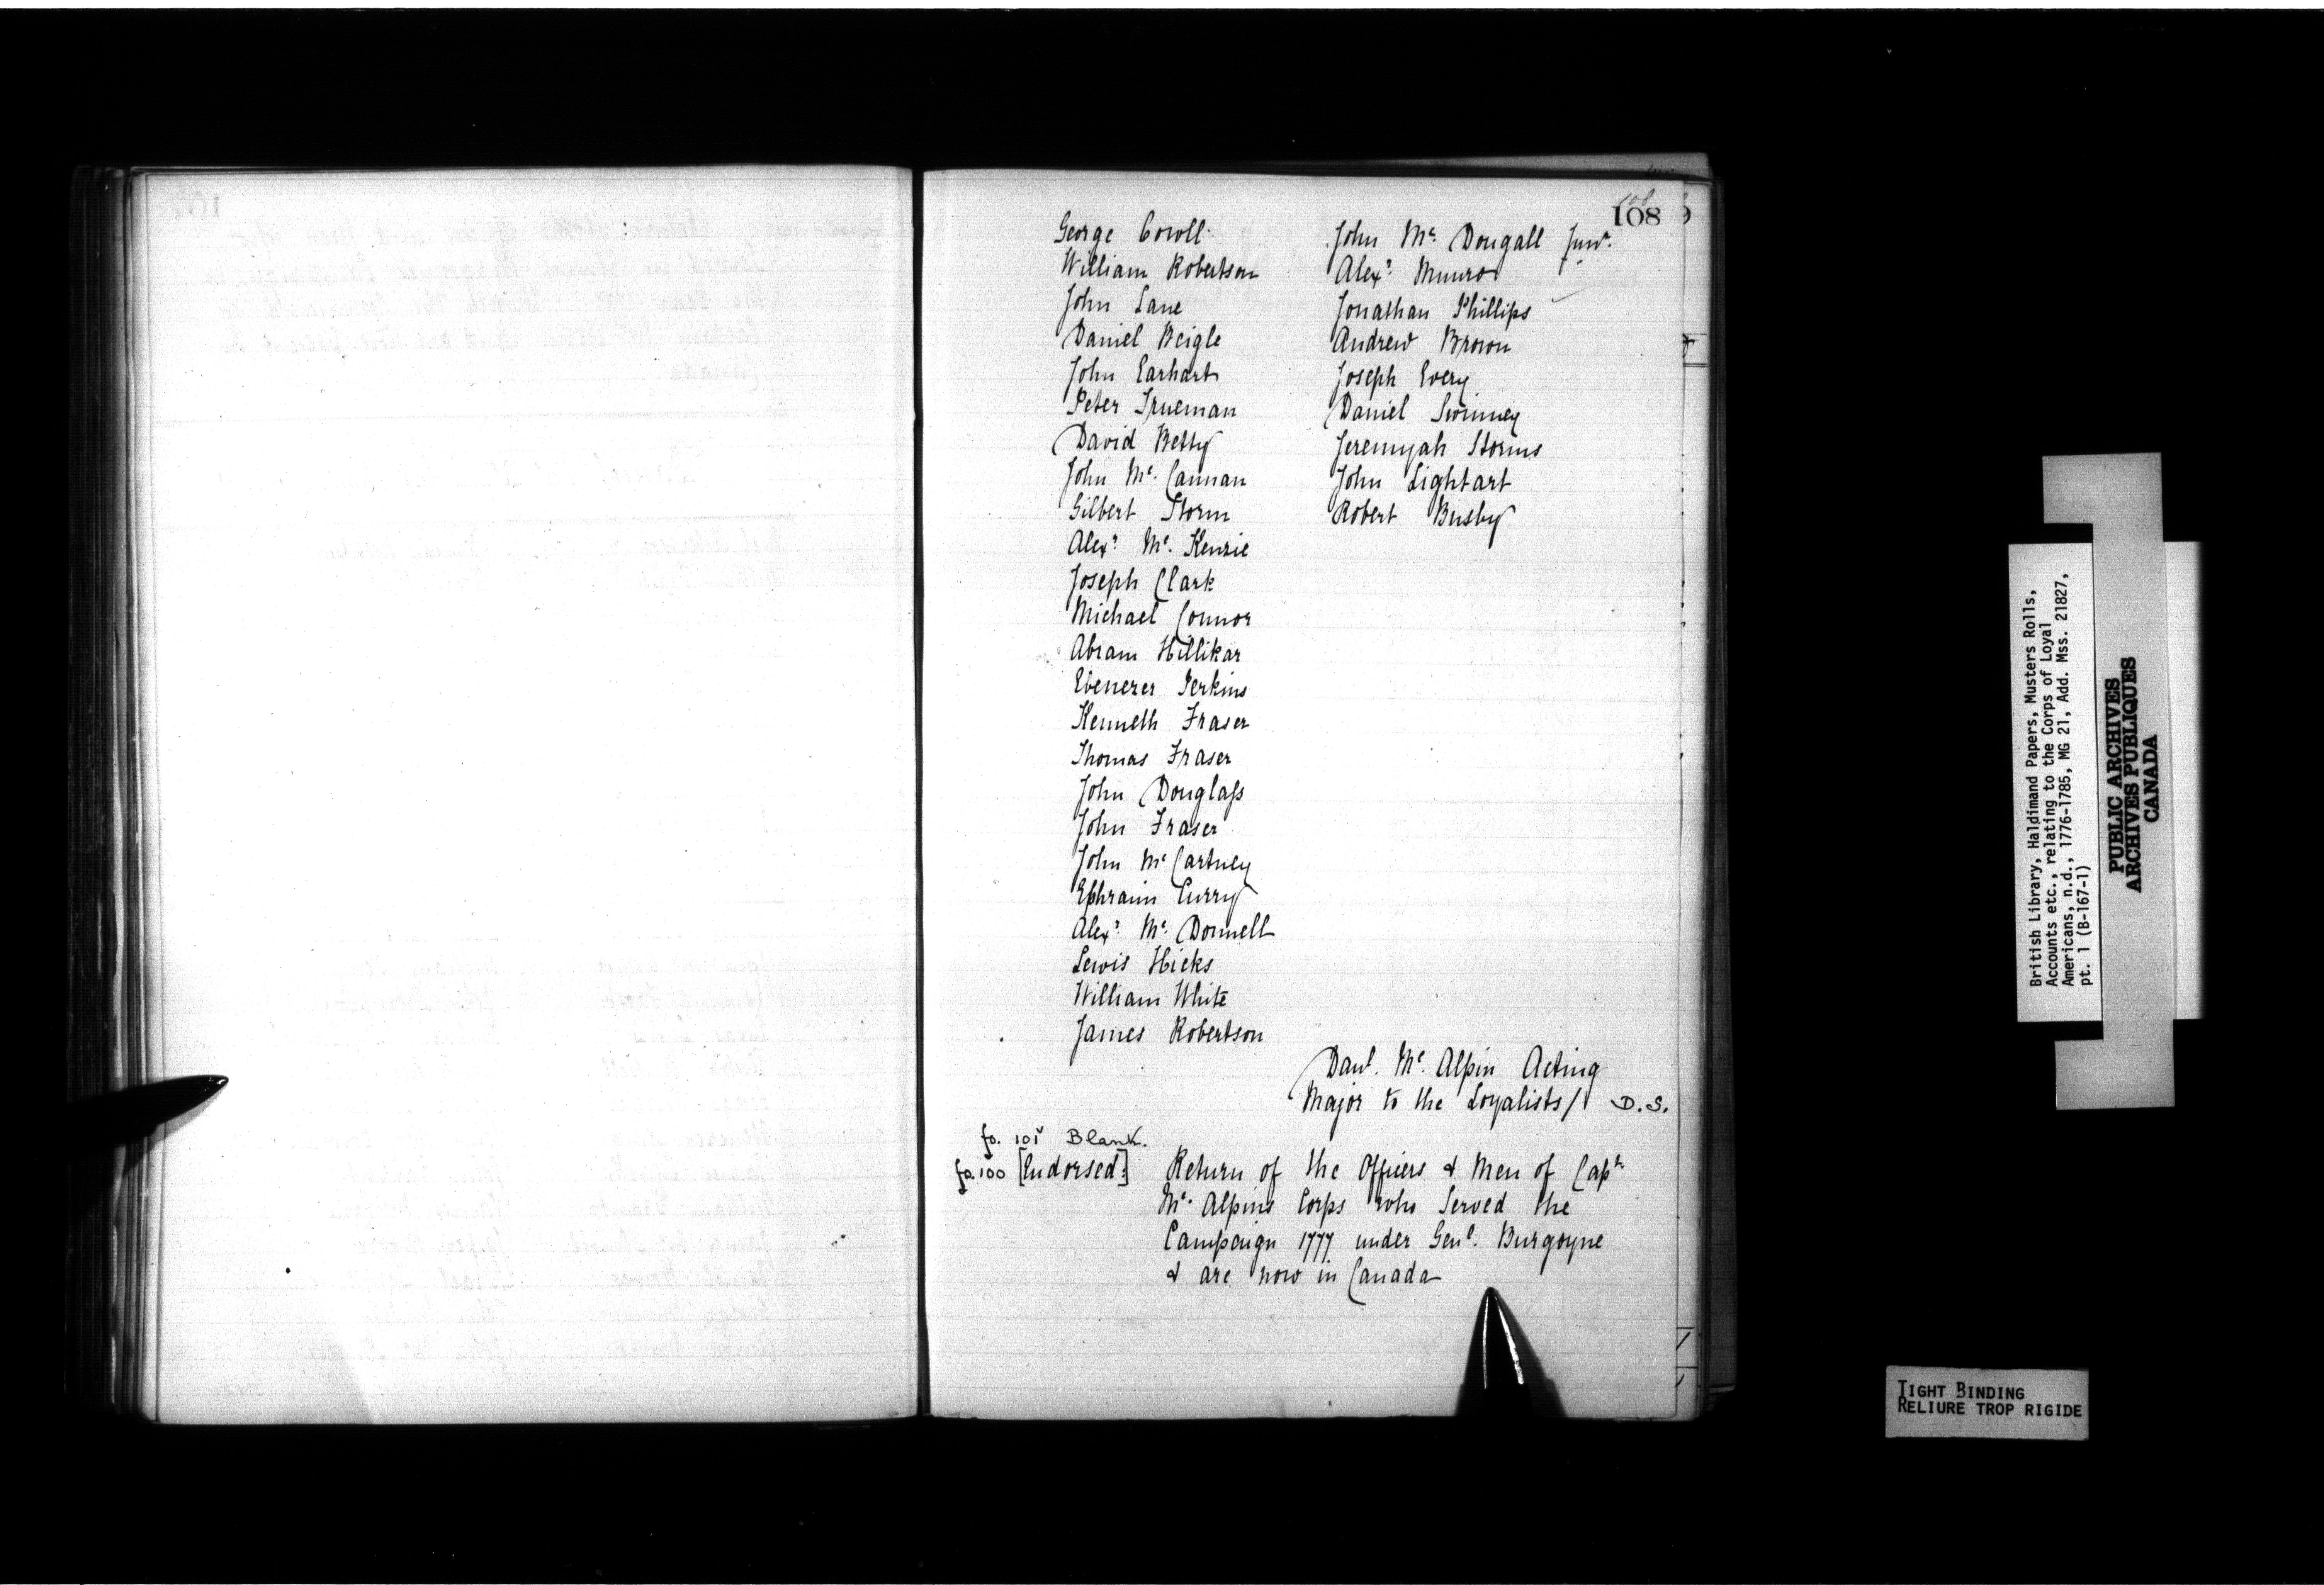 108
108
George Coroll
William Robertson
John Lane
Daniel Beigle
John Earhart
Peter Trueman
David Betty
John Mc. Cannan
Gilbert Storm
Alexr. Mc. Kenzie
Joseph Clark
Michael Connor
Abram Hillikar
Ebenezer Perkins
Kenneth Fraser
Thomas Fraser
John Douglass
John Fraser
John Mc Cartney
Ephraim Curry
Alexr. Mc. Donnell
Lewis Hicks
William White
James Robertson
John Mc. Dougall Junr.
Alexr. Munro
Jonathan Phillips
Andrew Brown
Joseph Every
Daniel Swinney
Jeremyah Storms
John Lightart
Robert Busby
Danl. Mc. Alpin Acting
Major to the Loyalists/ D.S.
fo. 101 Blank.
fo. 100 [Endorsed:] Return of the Officers & Men of Capt.
Mc. Alpins Corps who Served the
Campaign 1777 under Genl. Burgoyne
& are now in Canada
British Library, Haldimand Papers, Musters Rolls,
Accounts etc., relating to the Corps of Loyal
Americans, n.d., 1776-1785, MG 21, Add. Mss. 21827,
pt. 1 (B-167-1)
PUBLIC ARCHIVES
ARCHIVES PUBLIQUES
CANADA
TIGHT BINDING
RELIURE TROP RIGIDE